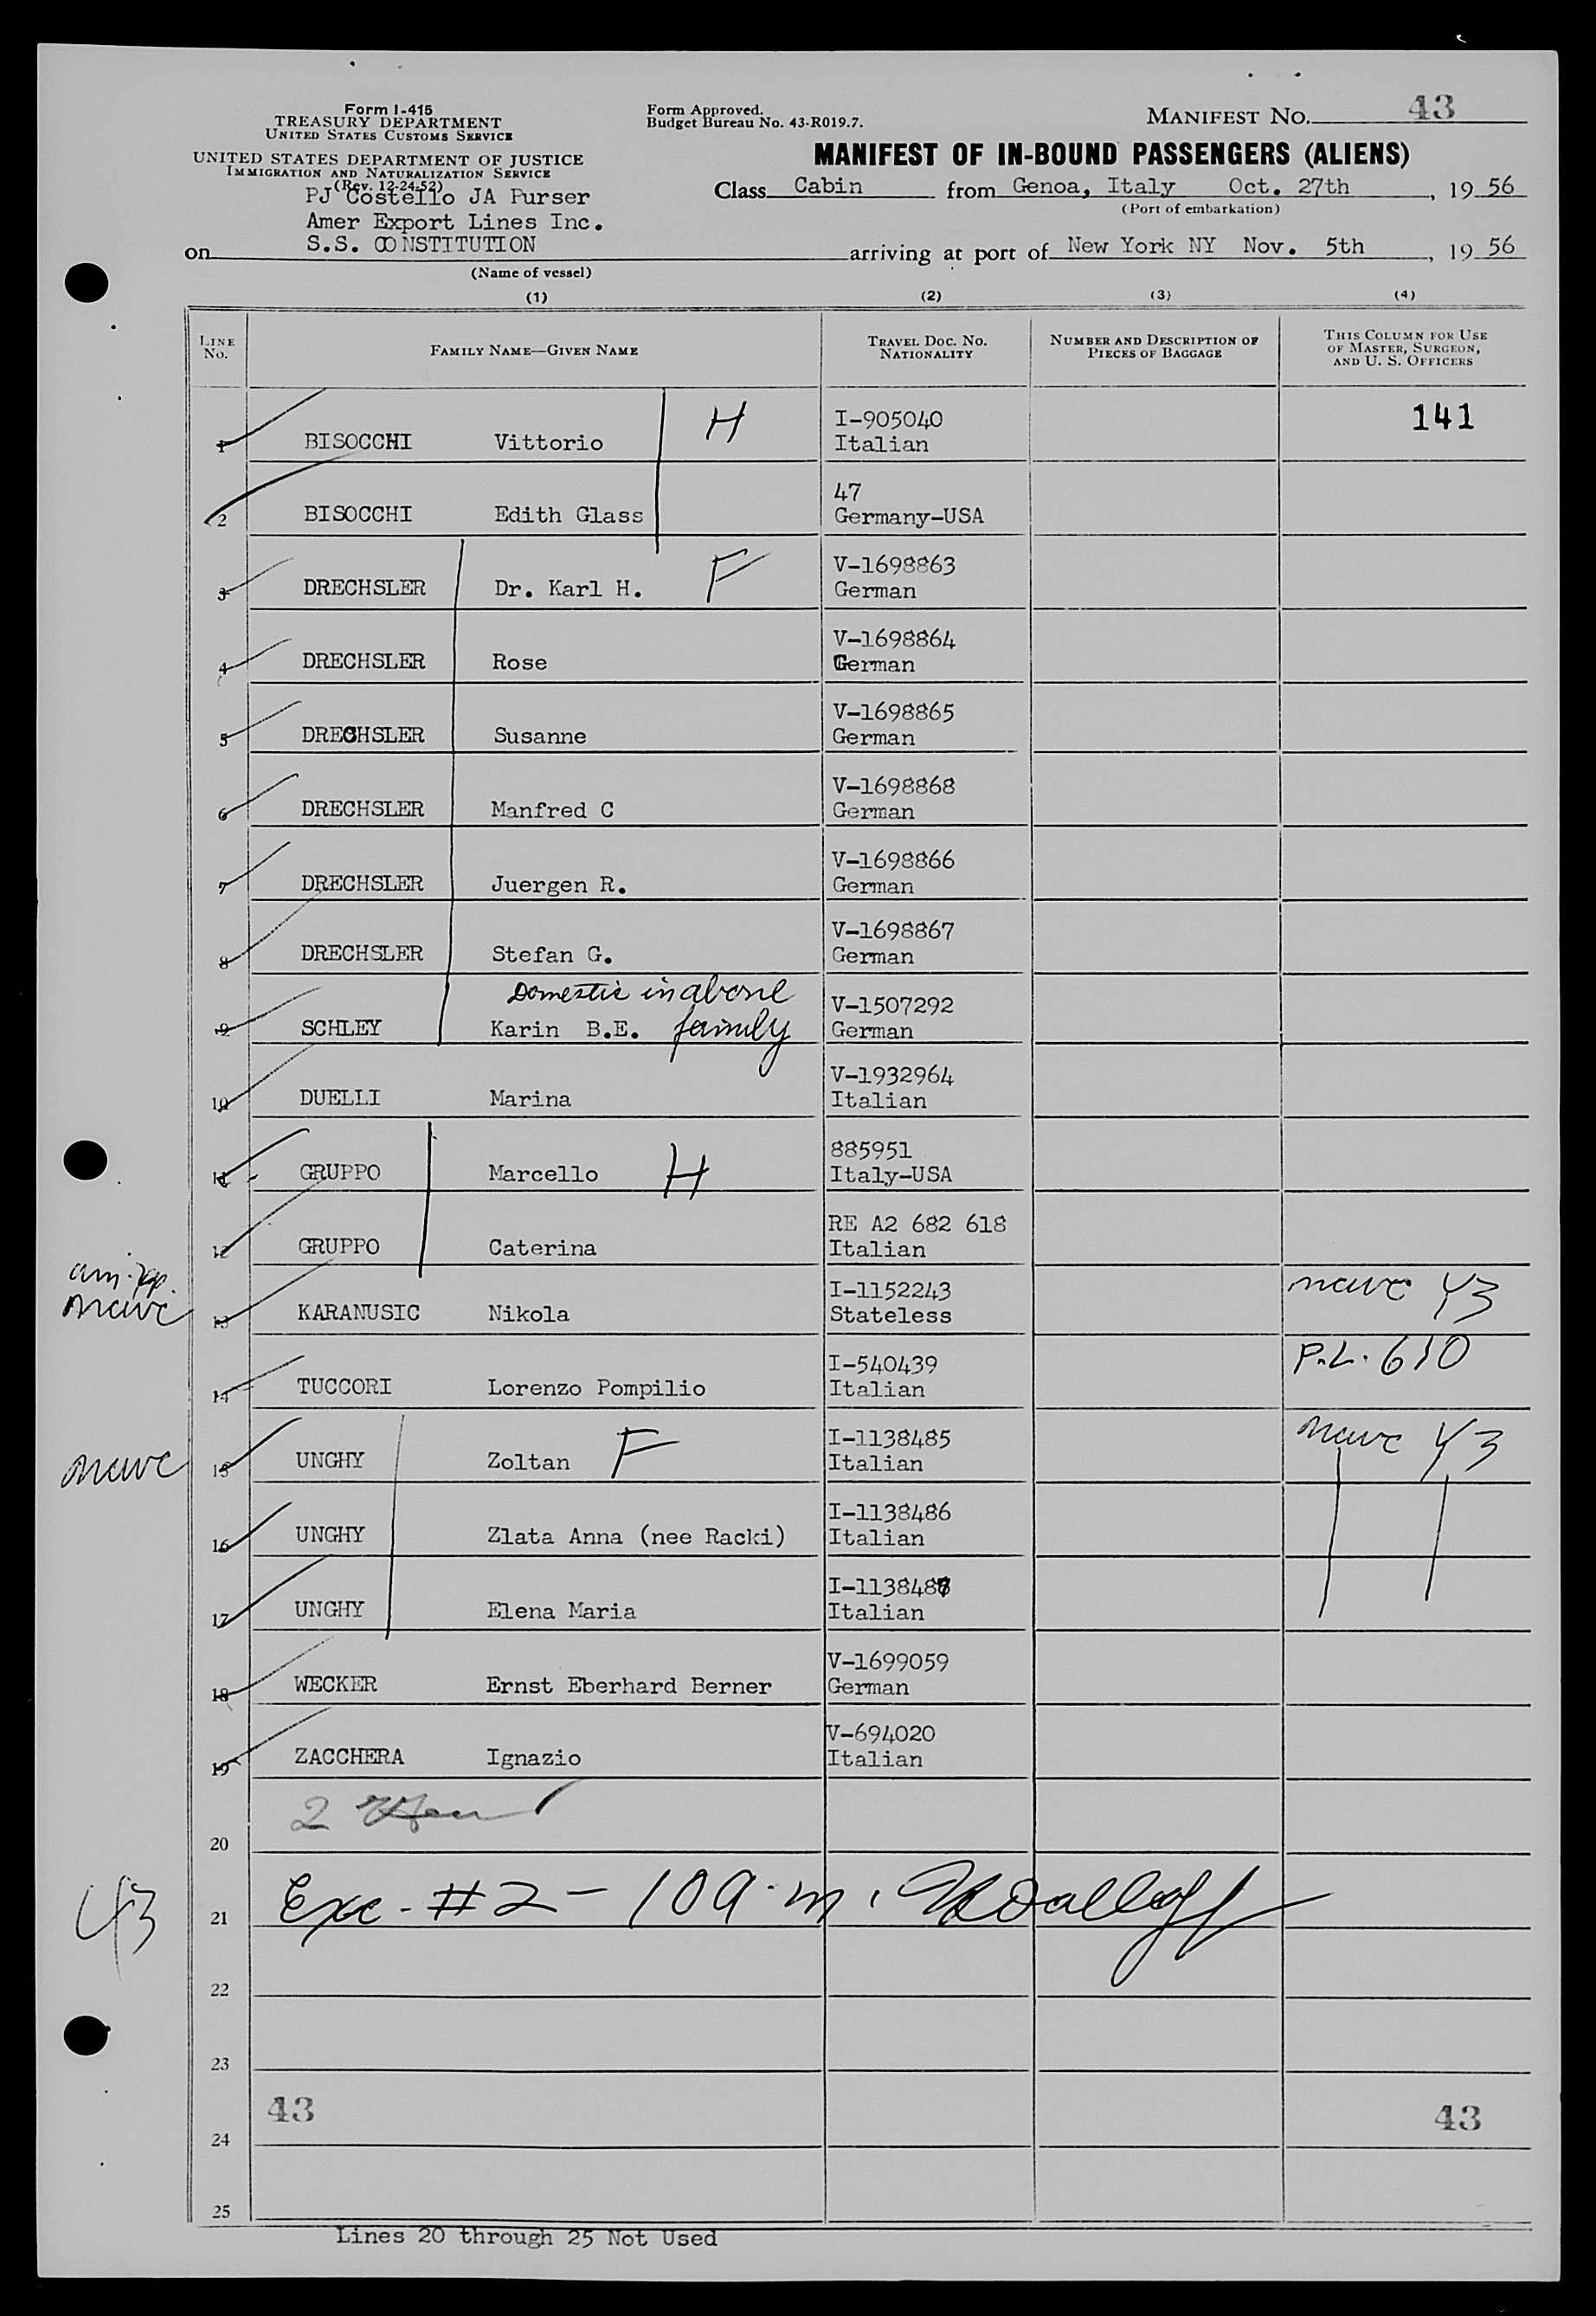 Form I-415
TREASURY DEPARTMENT
UNITED STATES CUSTOMS SERVICE
UNITED STATES DEPARTMENT OF JUSTICE
IMMIGRATION AND NATURALIZATION SERVICE
(Rev. 12-24-52)
Form Approved.
Budget Bureau No. 43-R019.7.
MANIFEST NO. 43
MANIFEST OF IN-BOUND PASSENGERS (ALIENS)
Class Cabin from Genoa, Italy Oct. 27th, 19 56
(Port of embarkation)
PJ Costello JA Purser
Amer Export Lines Inc.
on S.S. CONSTITUTION arriving at port of New York NY Nov. 5th, 19 56
(Name of vessel)
(1) (2) (3) (4)
LINE No. FAMILY NAME—GIVEN NAME TRAVEL DOC. NO. NATIONALITY NUMBER AND DESCRIPTION OF PIECES OF BAGGAGE THIS COLUMN FOR USE OF MASTER, SURGEON, AND U. S. OFFICERS
H I-905040 141
1 BISOCCHI Vittorio Italian
47
2 BISOCCHI Edith Glass Germany-USA
F V-1698863
3 DRECHSLER Dr. Karl H. German
V-1698864
4 DRECHSLER Rose German
V-1698865
5 DRECHSLER Susanne German
V-1698868
6 DRECHSLER Manfred C German
V-1698866
7 DRECHSLER Juergen R. German
V-1698867
8 DRECHSLER Stefan G. German
Domestic in above V-1507292
9 SCHLEY Karin B.E. family German
V-1932964
10 DUELLI Marina Italian
885951
11 GRUPPO Marcello H Italy-USA
RE A2 682 618
12 GRUPPO Caterina Italian
I-1152243
13 KARANUSIC Nikola Stateless Y3
I-540439 P.L. 610
14 TUCCORI Lorenzo Pompilio Italian
I-1138485
15 UNGHY Zoltan F Italian Y3
I-1138486
16 UNGHY Zlata Anna (nee Racki) Italian
I-1138487
17 UNGHY Elena Maria Italian
V-1699059
18 WECKER Ernst Eberhard Berner German
V-694020
19 ZACCHERA Ignazio Italian
2
20
43 21 Exc. #2 - 10 a.m.
22
23
43 43
24
25
Lines 20 through 25 Not Used